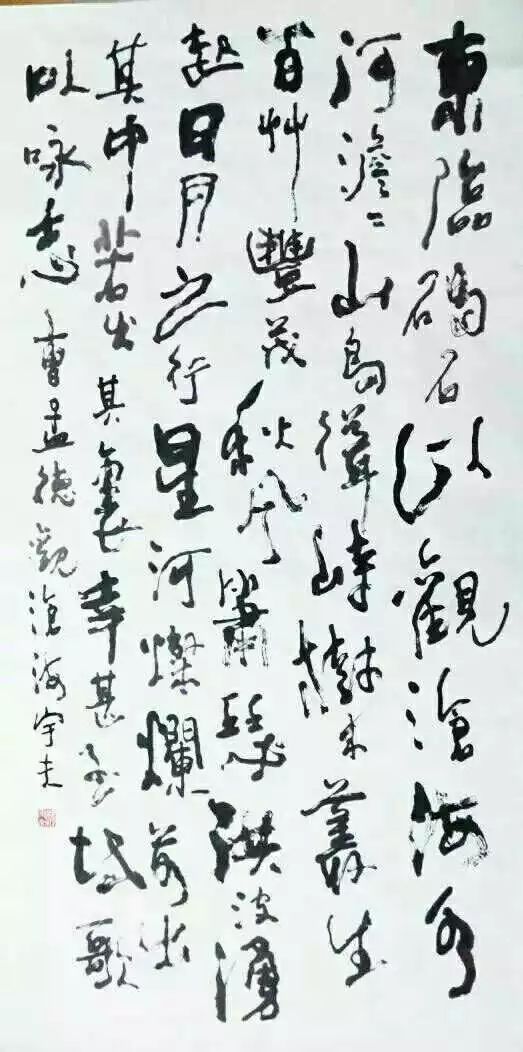 東臨碣石以觀滄海水
何澹〻山島聳峙樹木叢生
百艸豐茂秋風蕭瑟洪波湧
起日月之行星河燦爛若出
其中若出其裏幸甚至哉歌
以咏志曹孟德觀滄海宇